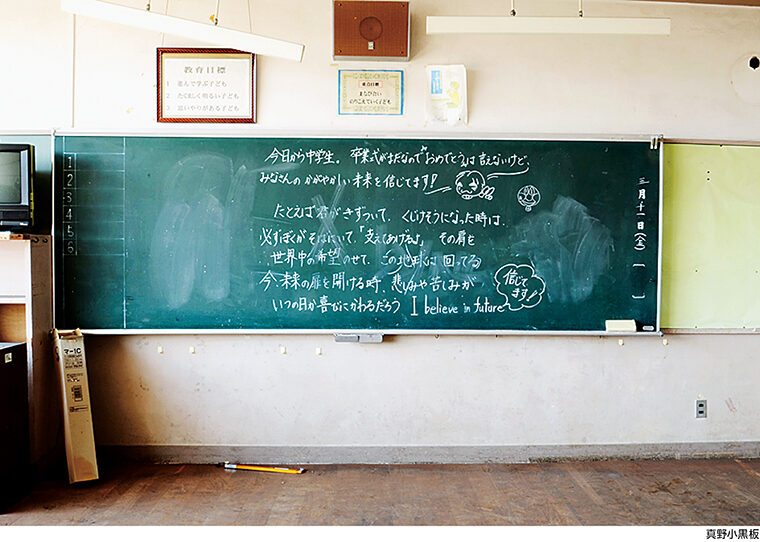 教育目標
1 進んで学ぶ子ども
2 たのしく明るい子ども
3 思いやりがある子ども
重点目標
まなび合い
のりこえていく子ども
1
2
3
4
5
6
今日から中学生。 卒業式がまだなので"おめでとう"は言えないけど、
みなさんのかがやかしい未来を信じてます!
たとえば君がきずついて、くじけそうになった時は、
必ずぼくがそばにいて、「支えてあげるよ」 その肩を
世界中の希望のせて、この地球は回ってる
今、未来の扉を開ける時、悲しみや苦しみが
いつの日か喜びにかわるだろう I believe in future
信じて
ます!
三月十一日(金)
マーIC
真野小黒板